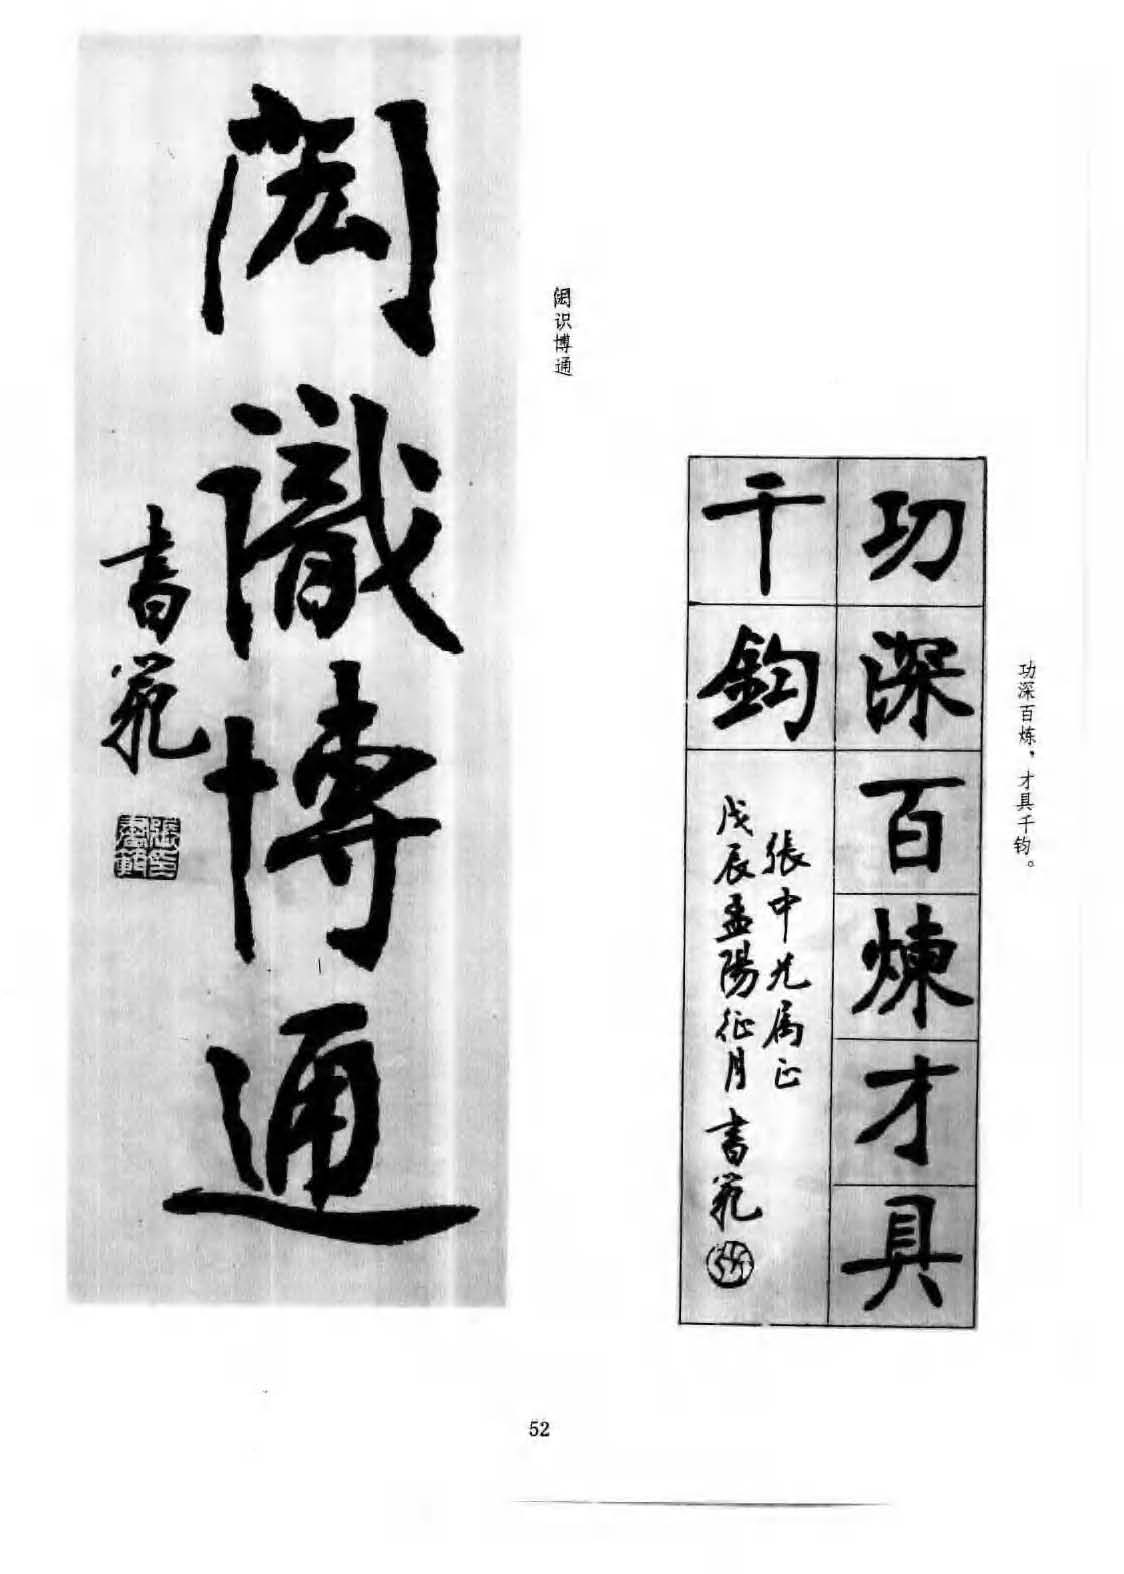 功深百炼，才具千钧。
功深百煉才具
千鈞
張中兄属正
戊辰孟陽征月 書範
闳识博通
閎識博通
書範
張書範印
52